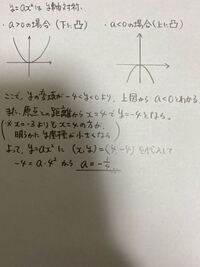 y=ax²はy軸対称.
・a>0の場合(下に凸) ・a<0の場合(上に凸)
ここで、yの変域が -4<y<0より、上図から a<0とわかる
また、原点との距離から x=4で y=-4となる。
(※ x=-3よりも x=4の方が、
明らかに y座標が小さくなる
よって、y=ax²に (x,y)=(4,-4)を代入して
-4=a・4²から a=-1/4